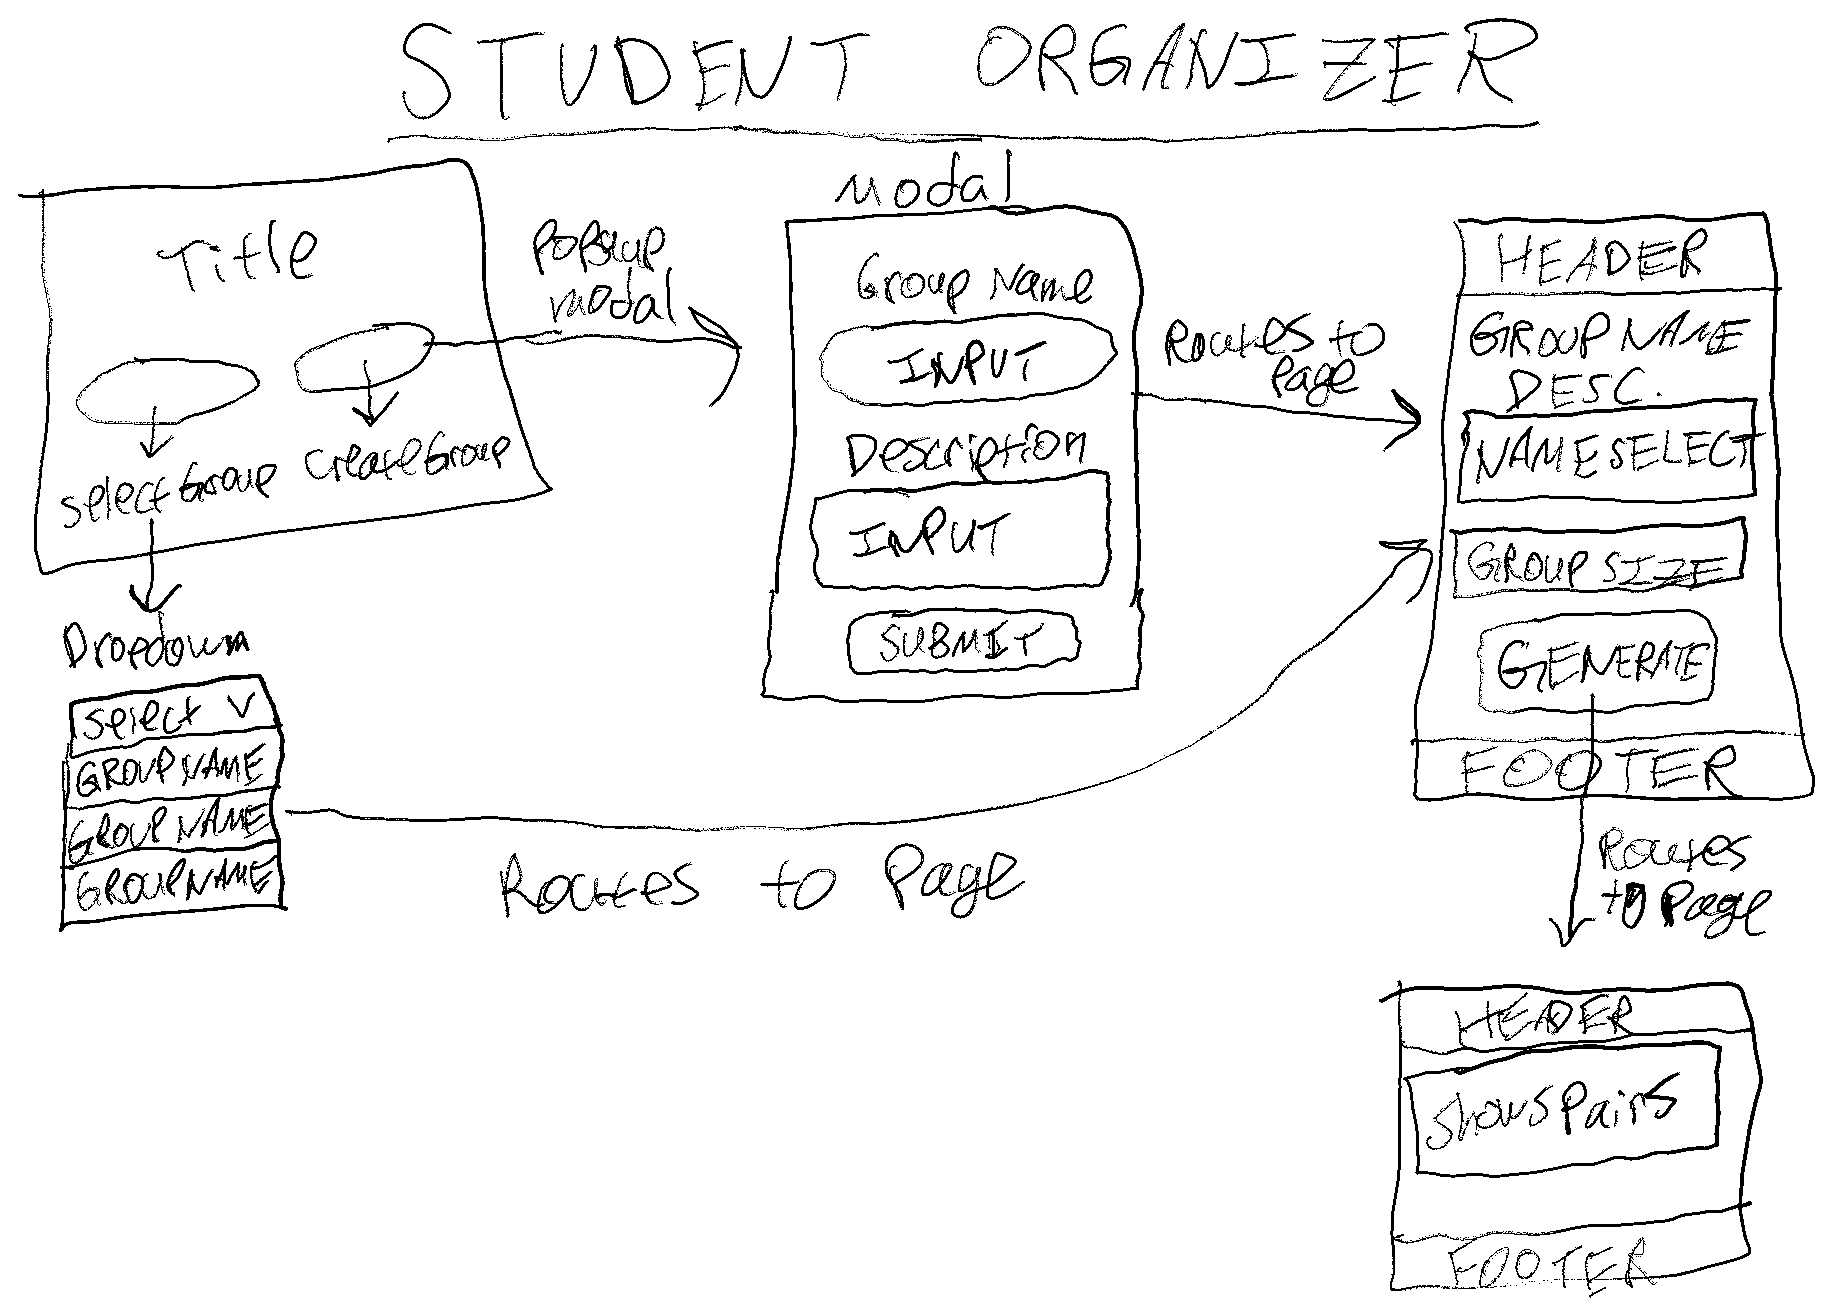 STUDENT ORGANIZER
Title
selectGroup
createGroup
Popup
modal
Dropdown
select V
GROUP NAME
GROUP NAME
GROUP NAME
Routes to Page
Modal
Group Name
INPUT
Description
INPUT
SUBMIT
Routes to
Page
HEADER
GROUP NAME
DESC.
NAME SELECT
GROUP SIZE
GENERATE
FOOTER
Routes
to Page
HEADER
Shows Pairs
FOOTER